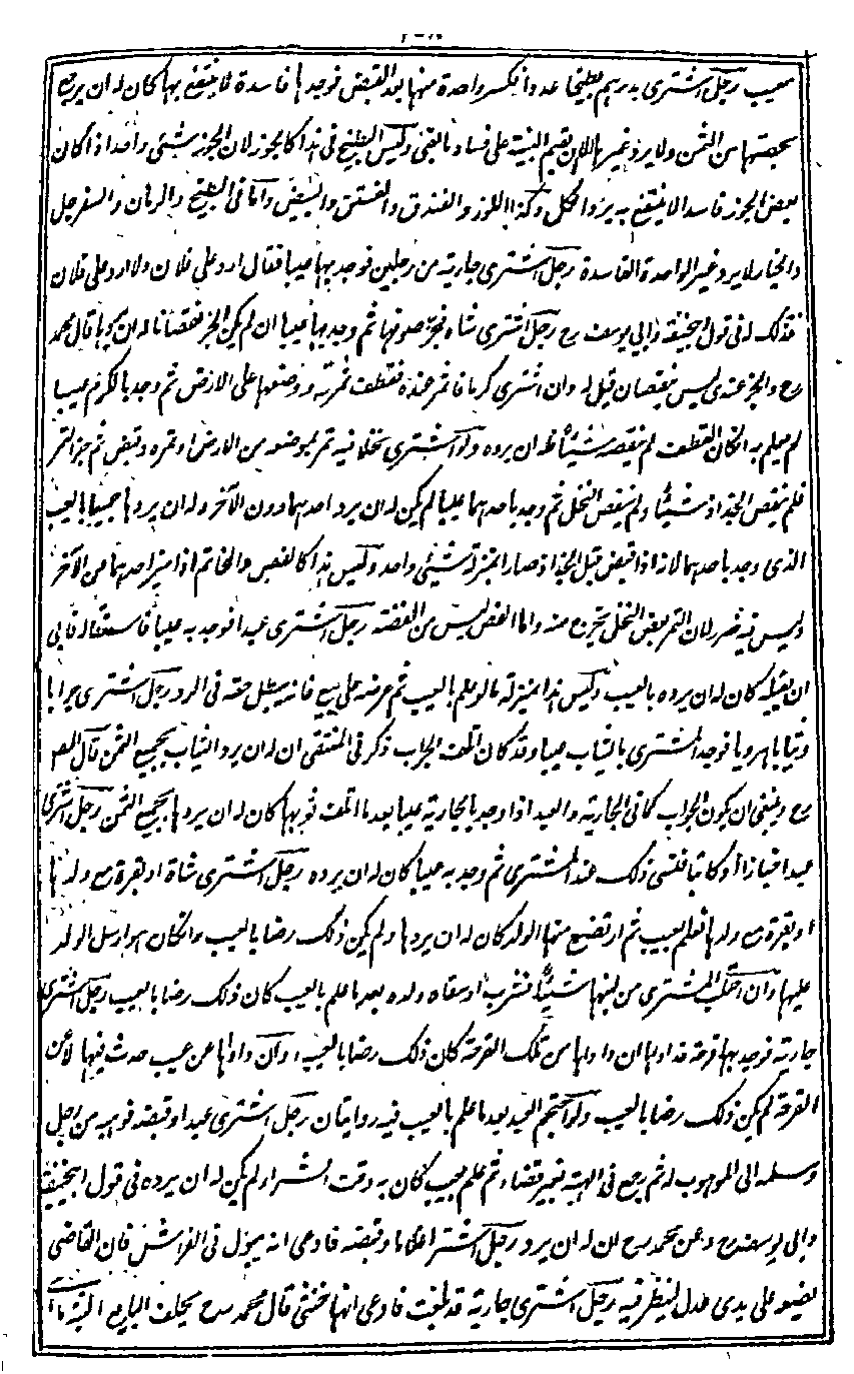 معيب رجل اشترى بدرهم بطيخا عددا فكسر واحدة منها بعد القبض فوجدها فاسدة لا ينتفع بها كان له ان يرجع
بحصتها من الثمن ولا يرد غيرها الا ان يقيم البينة على فساد ما بقى وليس البطيخ فى هذا كالجوز لان الجوز شئ واحد اذا كان
بعض الجوز فاسدا لا ينتفع به يرد الكل وكذا اللوز والفندق والفستق والبيض واما فى البطيخ والرمان والسفرجل
والخيار لا يرد غير الواحدة الفاسدة رجل اشترى جارية من رجلين فوجد بها عيبا فقال ارد على فلان ولا ارد على فلان
فذلك له فى قول ابيحنيفة وابي يوسف رح رجل اشترى شاة فجز صوفها ثم وجد بها عيبا ان لم يكن الجز نقصانا له ان يردها قال محمد
رح والجز عندى ليس بنقصان قيل له وان اشترى كرما فاثمر عنده فقطف ثمرته ووضعها على الارض ثم وجد بالكرم عيبا
لم يعلم به ان كان القطف لم ينقصه شيئا له ان يرده ولو اشترى نخلا فيه تمر بموضعه من الارض او تمره وقبض ثم جز التمر
فلم ينقص الجذاذ شيئا ولم ينقص النخل ثم وجد باحدهما عيبا لم يكن له ان يرد احدهما دون الآخر وله ان يردها جميعا بالعيب
الذى وجد باحدهما لانه اذا قبض قبل الجذاذ صارا بمنزلة شئ واحد وليس هذا كالفص والخاتم اذا ميز احدهما من الآخر
وليس فيه ضرر لان التمر بعض النخل يخرج منه واما الفص ليس من الفضة رجل اشترى عبدا فوجد به عيبا فاستقاله فابى
ان يقيله كان له ان يرده بالعيب وليس هذا بمنزلة ما لو علم بالعيب ثم عرضه على بيع فانه يبطل حقه فى الرد رجل اشترى جرابا
وثيابا هرويا فوجد المشترى بالثياب عيبا وقد كان اتلف الجراب ذكر فى المنتقى ان له ان يرد الثياب بجميع الثمن قال المص
رح وينبغى ان يكون الجراب كما فى الجارية والعبد اذا وجد بالجارية عيبا بعد ما اتلف ثوبها كان له ان يردها بجميع الثمن رجل اشترى
عبدا خبازا او كاتبا فنسى ذلك عند المشترى ثم وجد به عيبا كان له ان يرده رجل اشترى شاة او بقرة مع ولدها
او بقرة مع ولدها فعلم بعيب ثم ارتضع منها الولد كان له ان يردها ولم يكن ذلك رضا بالعيب وان كان هو ارسل الولد
عليها وان احتلب المشترى من لبنها شيئا فشرب او سقاه ولده بعد ما علم بالعيب كان ذلك رضا بالعيب رجل اشترى
جارية فوجد بها قرحة فداواها ان داواها من تلك القرحة كان ذلك رضا بالعيب وان داواها عن عيب حدث فيها لا عن
القرحة لم يكن ذلك رضا بالعيب ولو احتجم العبد بعد ما علم بالعيب فيه روايتان رجل اشترى عبدا وقبضه فوهبه من رجل
وسلمه الى الموهوب له ثم رجع فى الهبة بغير قضاء ثم علم بعيب كان به وقت الشراء لم يكن له ان يرده فى قول ابيحنيفة
وابي يوسف رح وعن محمد رح ان له ان يرد رجل اشترى غلاما وقبضه فادعى انه يبول فى الفراش فان القاضى
يضعه على يدى عدل لينظر فيه رجل اشترى جارية قد بلغت فادعى انها خنثى قال محمد رح يحلف البايع البتة